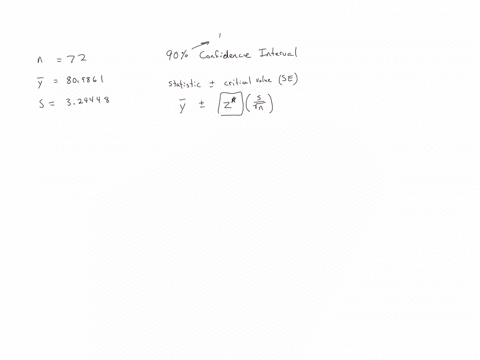 n = 72
ȳ = 80.9861
S = 3.24448
90% Confidence Interval
statistic ± critical value (SE)
ȳ ± z* (s/√n)